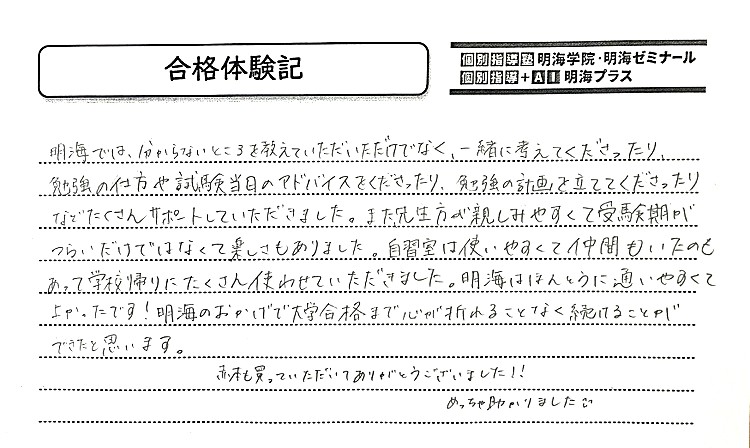 合格体験記
個別指導塾 明海学院・明海ゼミナール
個別指導+AI 明海プラス
明海では、分からないところを教えていただいただけでなく、一緒に考えてくださったり、
勉強の仕方や試験当日のアドバイスをくださったり、勉強の計画を立ててくださったり
などたくさんサポートしていただきました。また先生方が親しみやすくて受験期が
つらいだけではなくて楽しさもありました。自習室は使いやすくて仲間もいたのも
あって学校帰りにたくさん使わせていただきました。明海はほんとうに通いやすくて
よかったです!明海のおかげで大学合格まで心が折れることなく続けることが
できたと思います。
赤本も買っていただいてありがとうございました!!
めっちゃ助かりました